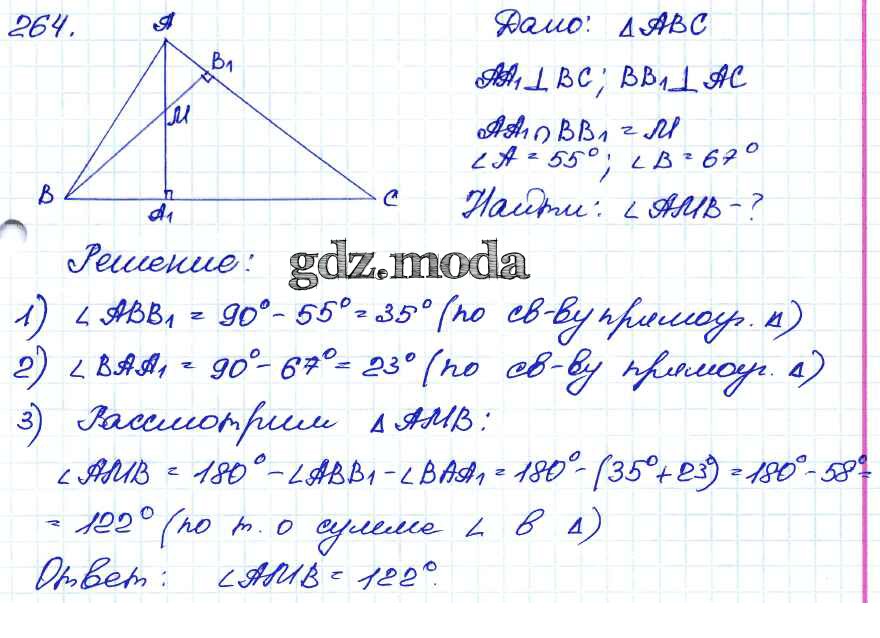 264.
A
B₁
M
B
A₁
C
Дано: △ABC
AA₁⊥BC; BB₁⊥AC
AA₁∩BB₁ = M
∠A = 55°; ∠B = 67°
Найти: ∠AMB - ?
Решение:
gdz.moda
1) ∠ABB₁ = 90° - 55° = 35° (по св-ву прямоуг. △)
2) ∠BAA₁ = 90° - 67° = 23° (по св-ву прямоуг. △)
3) Рассмотрим △AMB:
∠AMB = 180° - ∠ABB₁ - ∠BAA₁ = 180° - (35° + 23°) = 180° - 58° =
= 122° (по т. о сумме ∠ в △)
Ответ: ∠AMB = 122°.